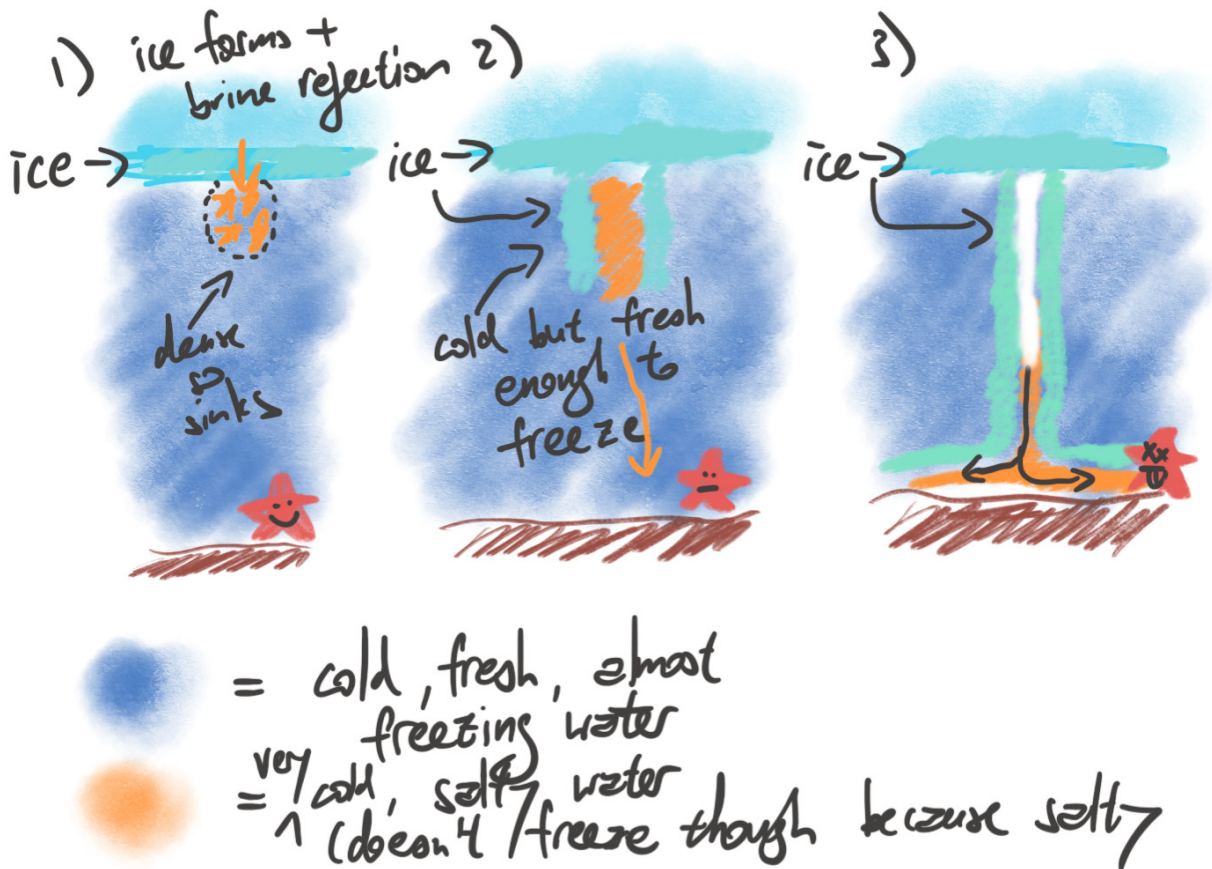 1) ice forms +
brine rejection
ice
dense
so
sinks
2)
ice
cold but fresh
enough to
freeze
3)
ice
xx
= cold, fresh, almost
freezing water
very
= ^ cold, salty water
(doesn't freeze though because salty